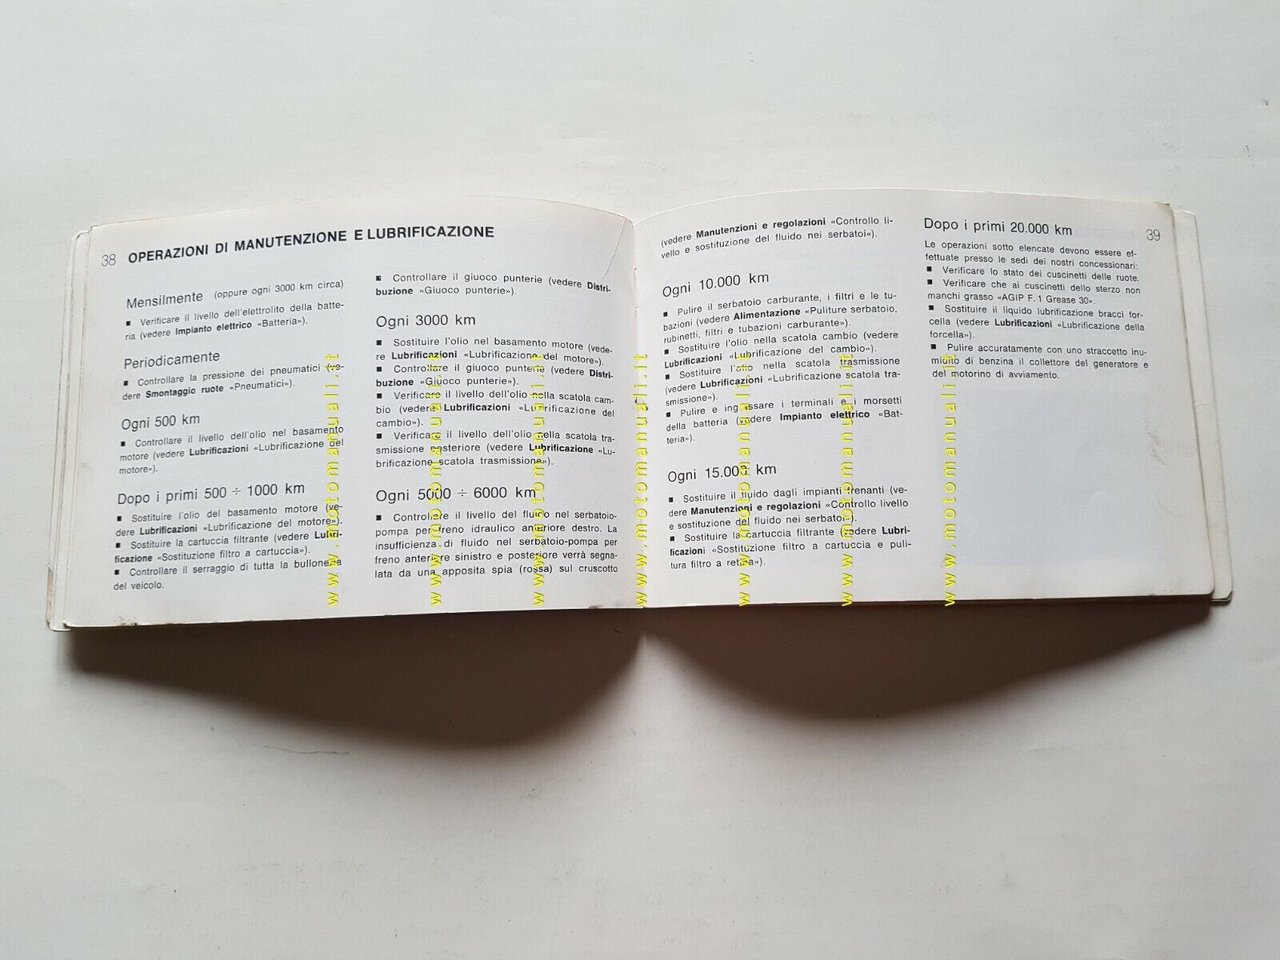 38 OPERAZIONI DI MANUTENZIONE E LUBRIFICAZIONE
Mensilmente (oppure ogni 3000 km circa)
■ Verificare il livello dell'elettrolito della batte-
ria (vedere Impianto elettrico «Batteria»).
Periodicamente
■ Controllare la pressione dei pneumatici (ve-
dere Smontaggio ruote «Pneumatici»).
Ogni 500 km
■ Controllare il livello dell'olio nel basamento
motore (vedere Lubrificazioni «Lubrificazione del
motore»).
Dopo i primi 500 ÷ 1000 km
■ Sostituire l'olio del basamento motore (ve-
dere Lubrificazioni «Lubrificazione del motore»).
■ Sostituire la cartuccia filtrante (vedere Lubri-
ficazione «Sostituzione filtro a cartuccia»).
■ Controllare il serraggio di tutta la bulloneria
del veicolo.
■ Controllare il giuoco punterie (vedere Distri-
buzione «Giuoco punterie»).
Ogni 3000 km
■ Sostituire l'olio nel basamento motore (vede-
re Lubrificazioni «Lubrificazione del motore»).
■ Controllare il giuoco punterie (vedere Distri-
buzione «Giuoco punterie»).
■ Verificare il livello dell'olio nella scatola cam-
bio (vedere Lubrificazioni «Lubrificazione del
cambio»).
■ Verificare il livello dell'olio nella scatola tra-
smissione posteriore (vedere Lubrificazione «Lu-
brificazione scatola trasmissione»).
Ogni 5000 ÷ 6000 km
■ Controllare il livello del fluido nel serbatoio-
pompa per freno idraulico anteriore destro. La
insufficienza di fluido nel serbatoio-pompa per
freno anteriore sinistro e posteriore verrà segna-
lata da una apposita spia (rossa) sul cruscotto
(vedere Manutenzioni e regolazioni «Controllo li-
vello e sostituzione del fluido nei serbatoi»).
Ogni 10.000 km
■ Pulire il serbatoio carburante, i filtri e le tu-
bazioni (vedere Alimentazione «Puliture serbatoio,
rubinetti, filtri e tubazioni carburante»).
■ Sostituire l'olio nella scatola cambio (vedere
Lubrificazioni «Lubrificazione del cambio»).
■ Sostituire l'olio nella scatola trasmissione
(vedere Lubrificazioni «Lubrificazione scatola tra-
smissione»).
■ Pulire e ingrassare i terminali e i morsetti
della batteria (vedere Impianto elettrico «Bat-
teria»).
Ogni 15.000 km
■ Sostituire il fluido dagli impianti frenanti (ve-
dere Manutenzioni e regolazioni «Controllo livello
e sostituzione del fluido nei serbatoi»).
■ Sostituire la cartuccia filtrante (vedere Lubri-
ficazioni «Sostituzione filtro a cartuccia e puli-
tura filtro a retina»).
Dopo i primi 20.000 km
39
Le operazioni sotto elencate devono essere ef-
fettuate presso le sedi dei nostri concessionari:
■ Verificare lo stato dei cuscinetti delle ruote.
■ Verificare che ai cuscinetti dello sterzo non
manchi grasso «AGIP F. 1 Grease 30».
■ Sostituire il liquido lubrificazione bracci for-
cella (vedere Lubrificazioni «Lubrificazione della
forcella»).
■ Pulire accuratamente con uno straccetto inu-
midito di benzina il collettore del generatore e
del motorino di avviamento.
www.motomanuali.it
www.motomanuali.it
www.motomanuali.it
www.motomanuali.it
www.motomanuali.it
www.motomanuali.it
www.motomanuali.it